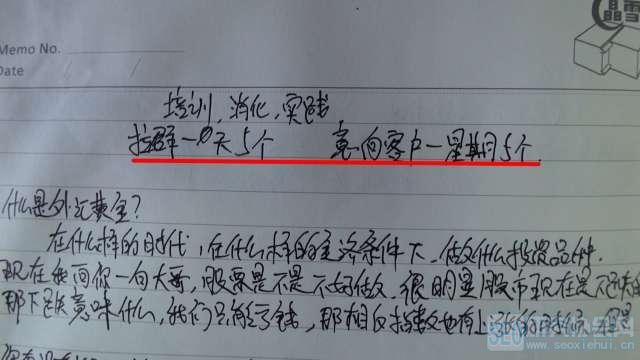 Memo No.
Date / /
晶雪
培训,消化,实践
拉群一天5个 意向客户一星期5个
什么是外汇黄金?
在什么样的时代,在什么样的经济条件下,做什么投资品种.
现在我问你一句大哥,股票是不是不好做,很明显股市现在是不是
那下跌意味什么,我们只能亏钱,那相反指数也有上涨的时候,但是
www.seoxiehui.cn